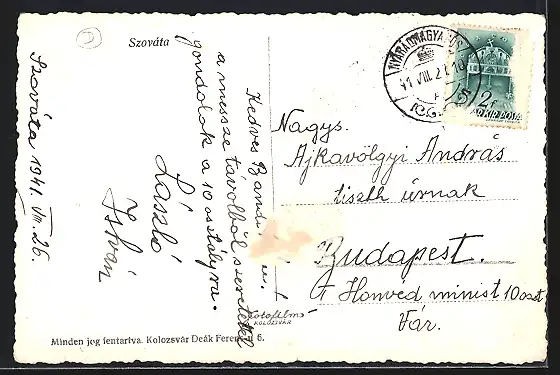 Szováta
Szováta 1941. VIII. 26.
Kedves Bandi
a messze távolból szeretettel
gondolok a 10 osztályra.
László
István
Nagys.
Ajkavölgyi András
tiszth úrnak
Budapest.
Honvéd minist 10 oszt
Vár.
NYÁRÁDMAGYARÓS
41 VIII. 2
2f
MAGYAR KIR. POSTA
Fotofilm
KOLOZSVÁR
Minden jog fentartva. Kolozsvár Deák Ferenc 6.